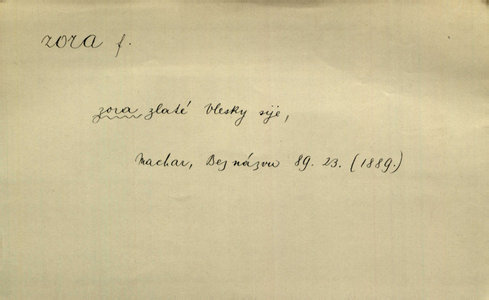 zora f.
zora zlaté blesky sije,
Machar, Bez názvu 89. 23. (1889.)